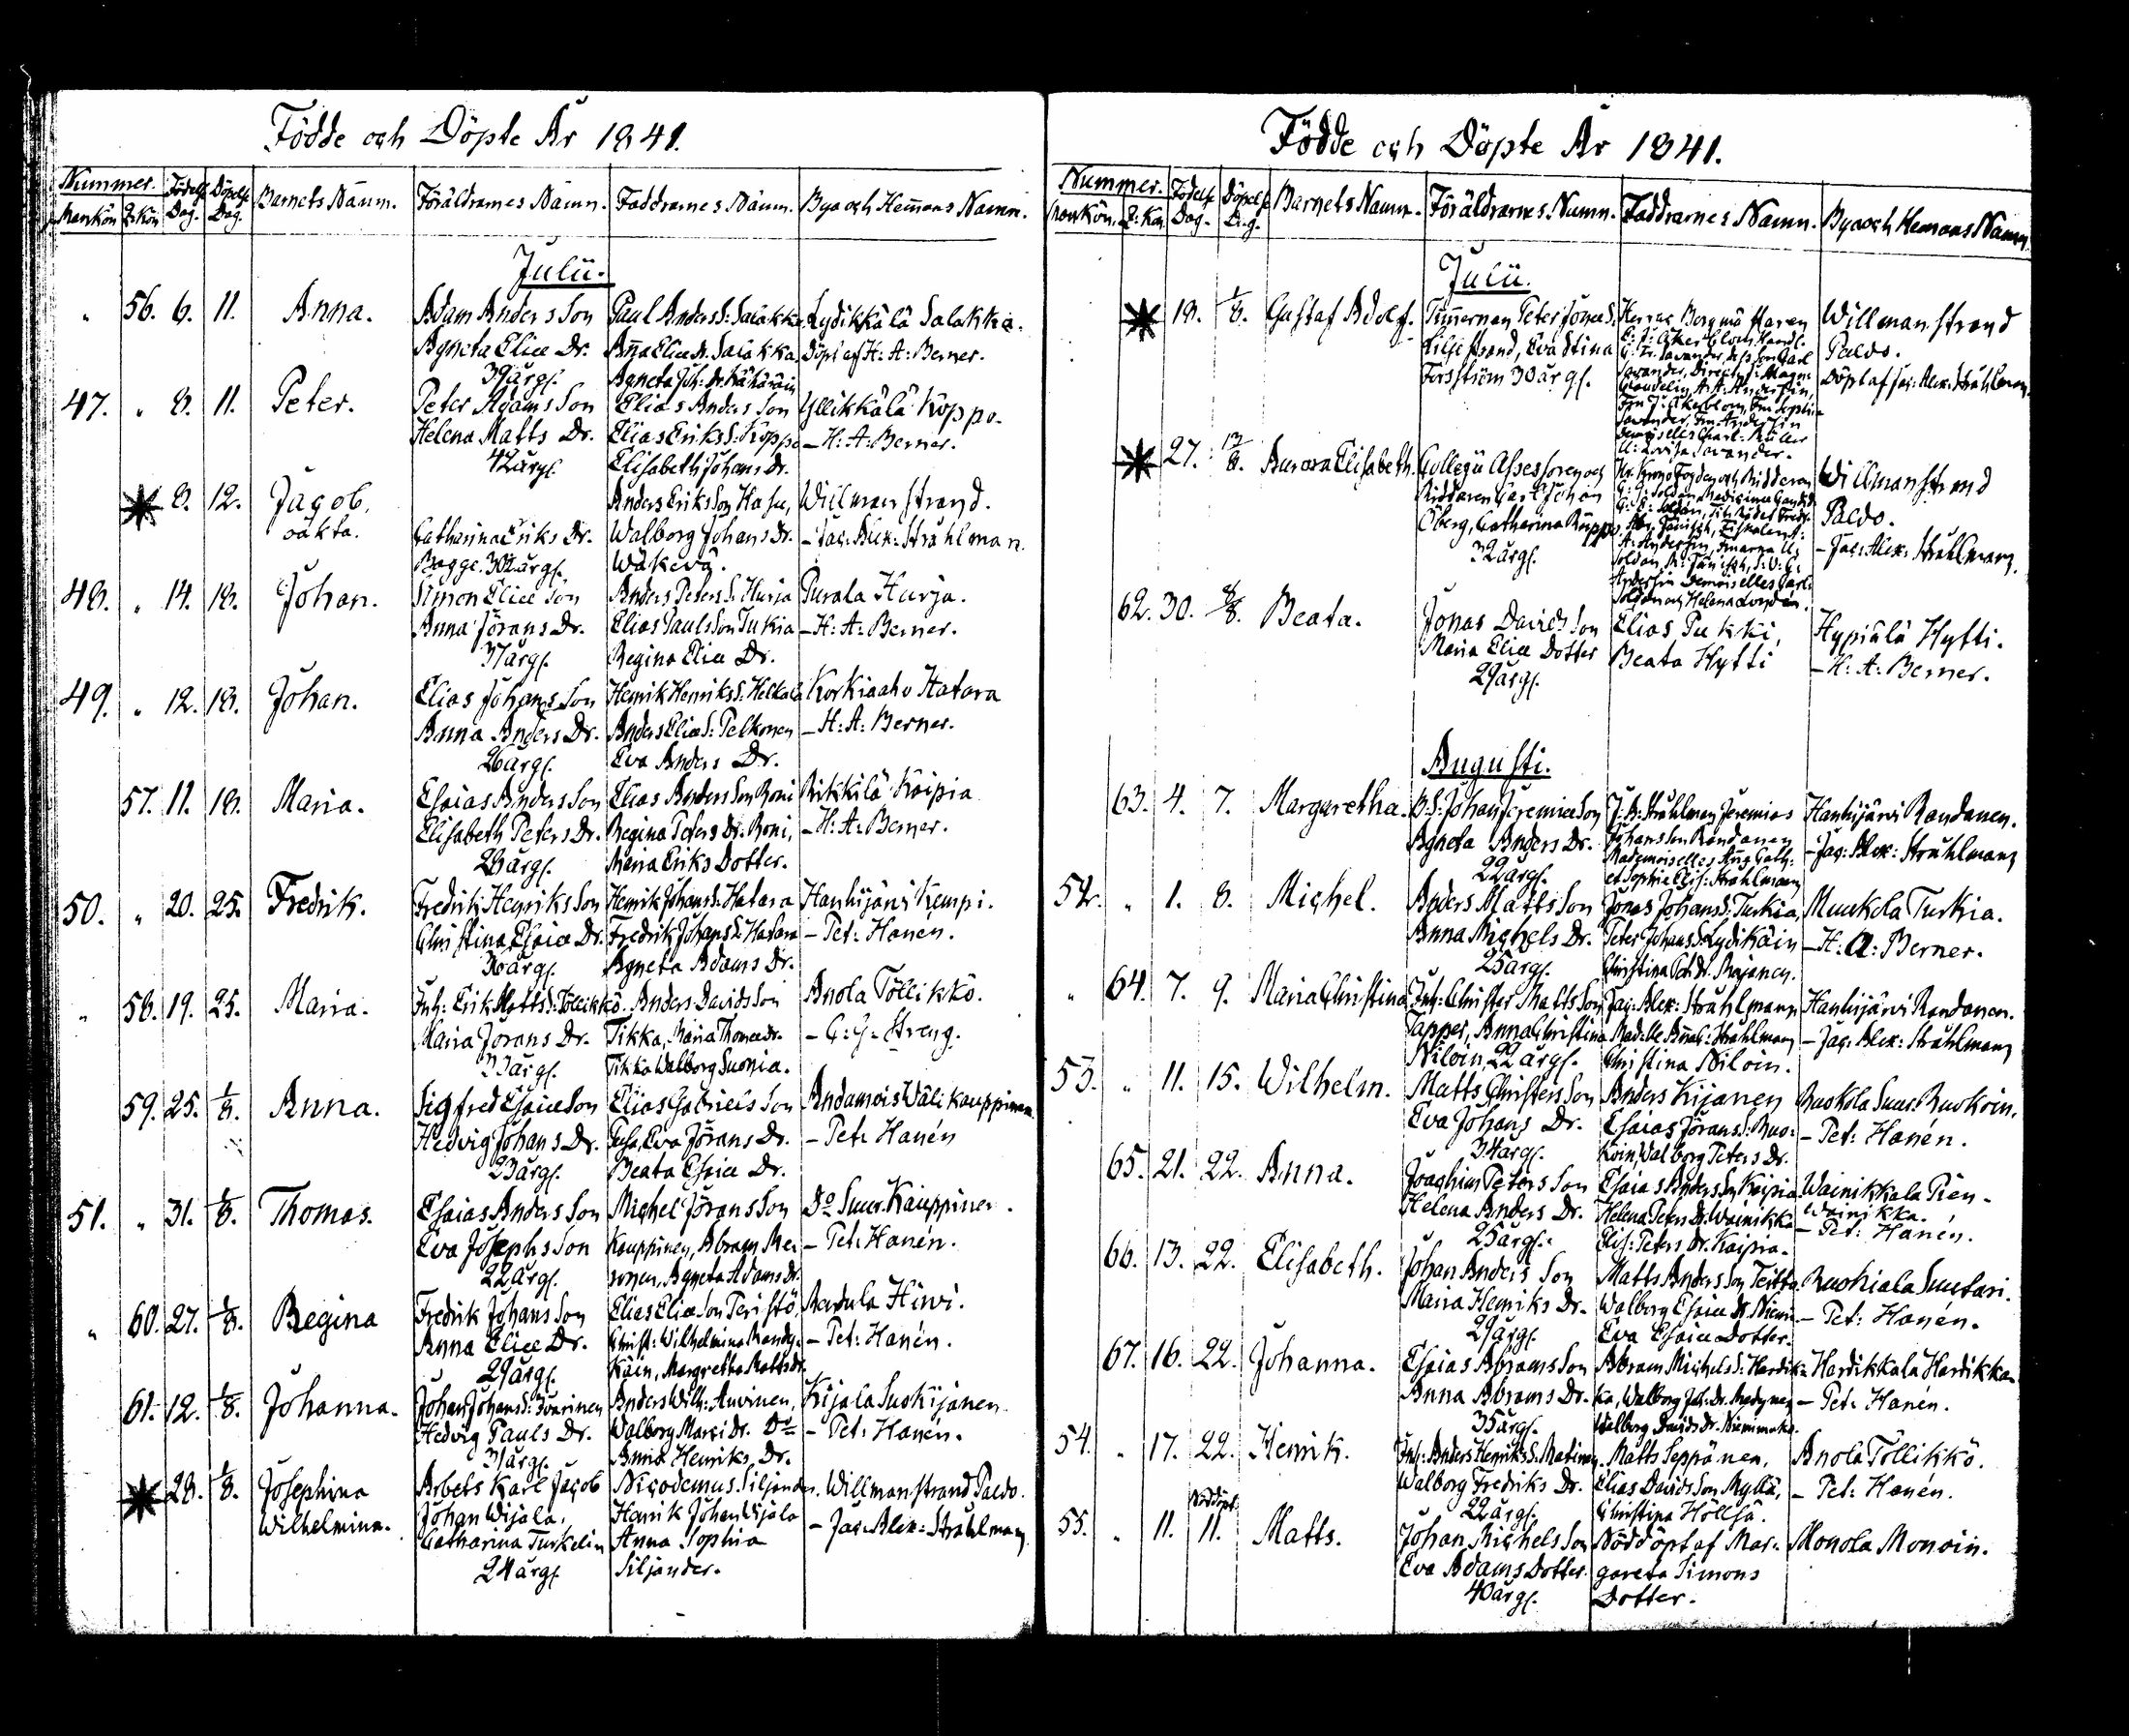 Födde och Döpte År 1841.
Nummer. Födelse Döpelse Barnets Namn. Föräldrarnes Namn. Faddrarnes Namn. Bya och Hemans Namn.
Mankön Q:kön Dag. Dag.
Julii.
„ 56. 6. 11. Anna. Adam Anders Son Paul Anders S: Salakka Lydikkälä Salakka.
Agneta Eliæ Dr. Aña Eliæ Dr. Salakka Döpt af H: A: Berner.
39 årg. Agneta Joh: Dr. Kähäräin
47. „ 8. 11. Peter. Peter Adams Son Elias Anders Son Yllikkälä Koppo.
Helena Matts Dr. Elias Eriks S: Koppo – H: A: Berner.
42 årg. Elisabeth Johans Dr.
8. 12. Jacob, Anders Eriks Son Willmanstrand.
oäkta. Catharina Eriks Dr. Walborg Johans Dr. – Jac: Alex: Stråhlman.
Bagge. 30 årg. Wäkevä.
48. „ 14. 18. Johan. Simon Eliæ Son Anders Peters S: Hurja Purala Hurja.
Anna Jörans Dr. Elias Pauls Son Tukia – H: A: Berner.
37 årg. Regina Eliæ Dr.
49. „ 12. 18. Johan. Elias Johans Son Henrik Henriks S: Helkala Korkiaaho Hatara
Anna Anders Dr. Anders Eliæ S: Pelkonen – H: A: Berner.
26 årg. Eva Anders Dr.
57. 11. 18. Maria. Esaias Anders Son Elias Anders Son Roni Rikkilä Kaipia
Elisabeth Peters Dr. Regina Peters Dr. Roni, – H: A: Berner.
28 årg. Maria Eriks Dotter.
50. „ 20. 25. Fredrik. Fredrik Henriks Son Henrik Johans S: Hatara Hanhijärvi Kempi.
Christina Esaiæ Dr. Fredrik Johans S: Hatara – Pet: Hanén.
30 årg. Agneta Adams Dr.
„ 58. 19. 25. Maria. Inh: Erik Matts S: Tollikkö. Anders Davids Son Anola Tollikkö.
Maria Jörans Dr. Tikka, Maria Thomæ Dr. – C: G: Streng.
33 årg. Tikka Walborg Suonia.
59. 25. 1/8. Anna. Sigfred Esaiæ Son Elias Gabriels Son Andamois Wälikauppinen
Hedvig Johans Dr. Pusa, Eva Jörans Dr. – Pet: Hanén
23 årg. Beata Esaiæ Dr.
51. „ 31. 1/8. Thomas. Esaias Anders Son Michel Jörans Son Do Suur Kauppinen.
Eva Josephs Son Kauppinen, Abram Me- – Pet: Hanén.
22 årg. ronen, Agneta Adams Dr.
„ 60. 27. 1/8. Regina Fredrik Johans Son Elias Eliæ Son Peristö Rapula Hiwi.
Anna Eliæ Dr. Christ: Wilhelmina Mandy- – Pet: Hanén.
29 årg. käin, Margretha Matts Dr.
61. 12. 1/8. Johanna. Johan Johans S: Ivarinen Anders Wilh: Auvinen, Kijala Suokijanen
Hedvig Pauls Dr. Walborg Marci Dr. Do – Pet: Hanén.
31 årg. Anna Henriks Dr.
28. 1/8. Josephina Arbets Karl Jacob Nicodemus Siljander. Willmanstrand Paldo.
Wilhelmina. Johan Wijala, Henrik Johan Wijala – Jac: Alex: Stråhlman
Catharina Turkelin Anna Sophia
24 årg. Siljander.
Födde och Döpte År 1841.
Nummer. Födelse Döpelse Barnets Namn. Föräldrarnes Namn. Faddrarnes Namn. Bya och Hemans Namn.
Mankön. Q: Kön Dag. Dag.
Julii.
18. 1/8. Gustaf Adolf. Timerman Peter Jonæ S: Herrar Borgmästaren Willmanstrand
Liljestrand, Eva Stina Paldo.
Forsström 30 årg. Döpt af Jac: Alex: Stråhlman.
Savander, Fru Anderssin
Demoiselles Charl:
U: Lovisa Savander.
27. 12/8. Aurora Elisabeth. Collegii Assessoren och Hr. Krono Fogden och Riddaren Willmanstrand
Riddaren Carl Johan Paldo.
Öberg, Catharina – Jac: Alex: Stråhlman.
32 årg. Anderssin Demoiselles Carl:
Soldan och Helena
62. 30. 8/8. Beata. Jonas Davids Son Elias Pukki, Hypiälä Hytti.
Maria Eliæ Dotter Beata Hytti – H: A: Berner.
29 årg.
Augusti.
63. 4. 7. Margaretha. B: S: Johan Jeremiæ Son J: A: Stråhlman Jeremias Hanhijärvi Randanen.
Agneta Anders Dr. Johans Son Randanen – Jac: Alex: Stråhlman
22 årg. Mademoiselles Ang: Cath:
et Sophie Elis: Stråhlman
52. „ 1. 8. Michel. Anders Matts Son Jonas Johans S: Turkia, Muukola Turkia.
Anna Michels Dr. Peter Johans S: Lydikäin – H: A: Berner.
25 årg. Christina Dr. Majanen.
„ 64. 7. 9. Maria Christina Inh: Christer Matts Son Jac: Alex: Stråhlman Hanhijärvi Randanen.
Tapper, Anna Christina – Jac: Alex: Stråhlman
Niloin 22 årg. Christina Niloin.
53. „ 11. 15. Wilhelm. Matts Christers Son Anders Kijanen Ruokola Suur Ruokoin.
Eva Johans Dr. Esaias Jörans S: Ruo- – Pet: Hanén.
34 årg. koin, Walborg Peters Dr.
65. 21. 22. Anna. Joachim Peters Son Esaias Anders Son Kaipia Wainikkala Pien-
Helena Anders Dr. Helena Peters Dr. Wainikka Wainikka.
25 årg. Elis: Peters Dr. Kaipia. – Pet: Hanén.
66. 13. 22. Elisabeth. Johan Anders Son Matts Anders Son Teitto Ruohiala Suutari.
Maria Henriks Dr. Walborg Esaiæ Dr. Niemi – Pet: Hanén.
29 årg. Eva Esaiæ Dotter.
67. 16. 22. Johanna. Esaias Abrams Son Abram Michels S: Hardik- Hardikkala Hardikka
Anna Abrams Dr. ka, Walborg Joh: Dr. – Pet: Hanén.
35 årg. Walborg Davids Dr.
54. „ 17. 22. Henrik. Inh: Anders Henriks S: Matinen Matts Seppänen, Anola Tollikkö.
Walborg Fredriks Dr. Elias Davids Son Myllä, – Pet: Hanén.
22 årg. Christina Höllsä.
Nöddöpt.
55. „ 11. 11. Matts. Johan Michels Son Nöddöpt af Mar- Monola Monoin.
Eva Adams Dotter. gareta Simons
40 årg. Dotter.